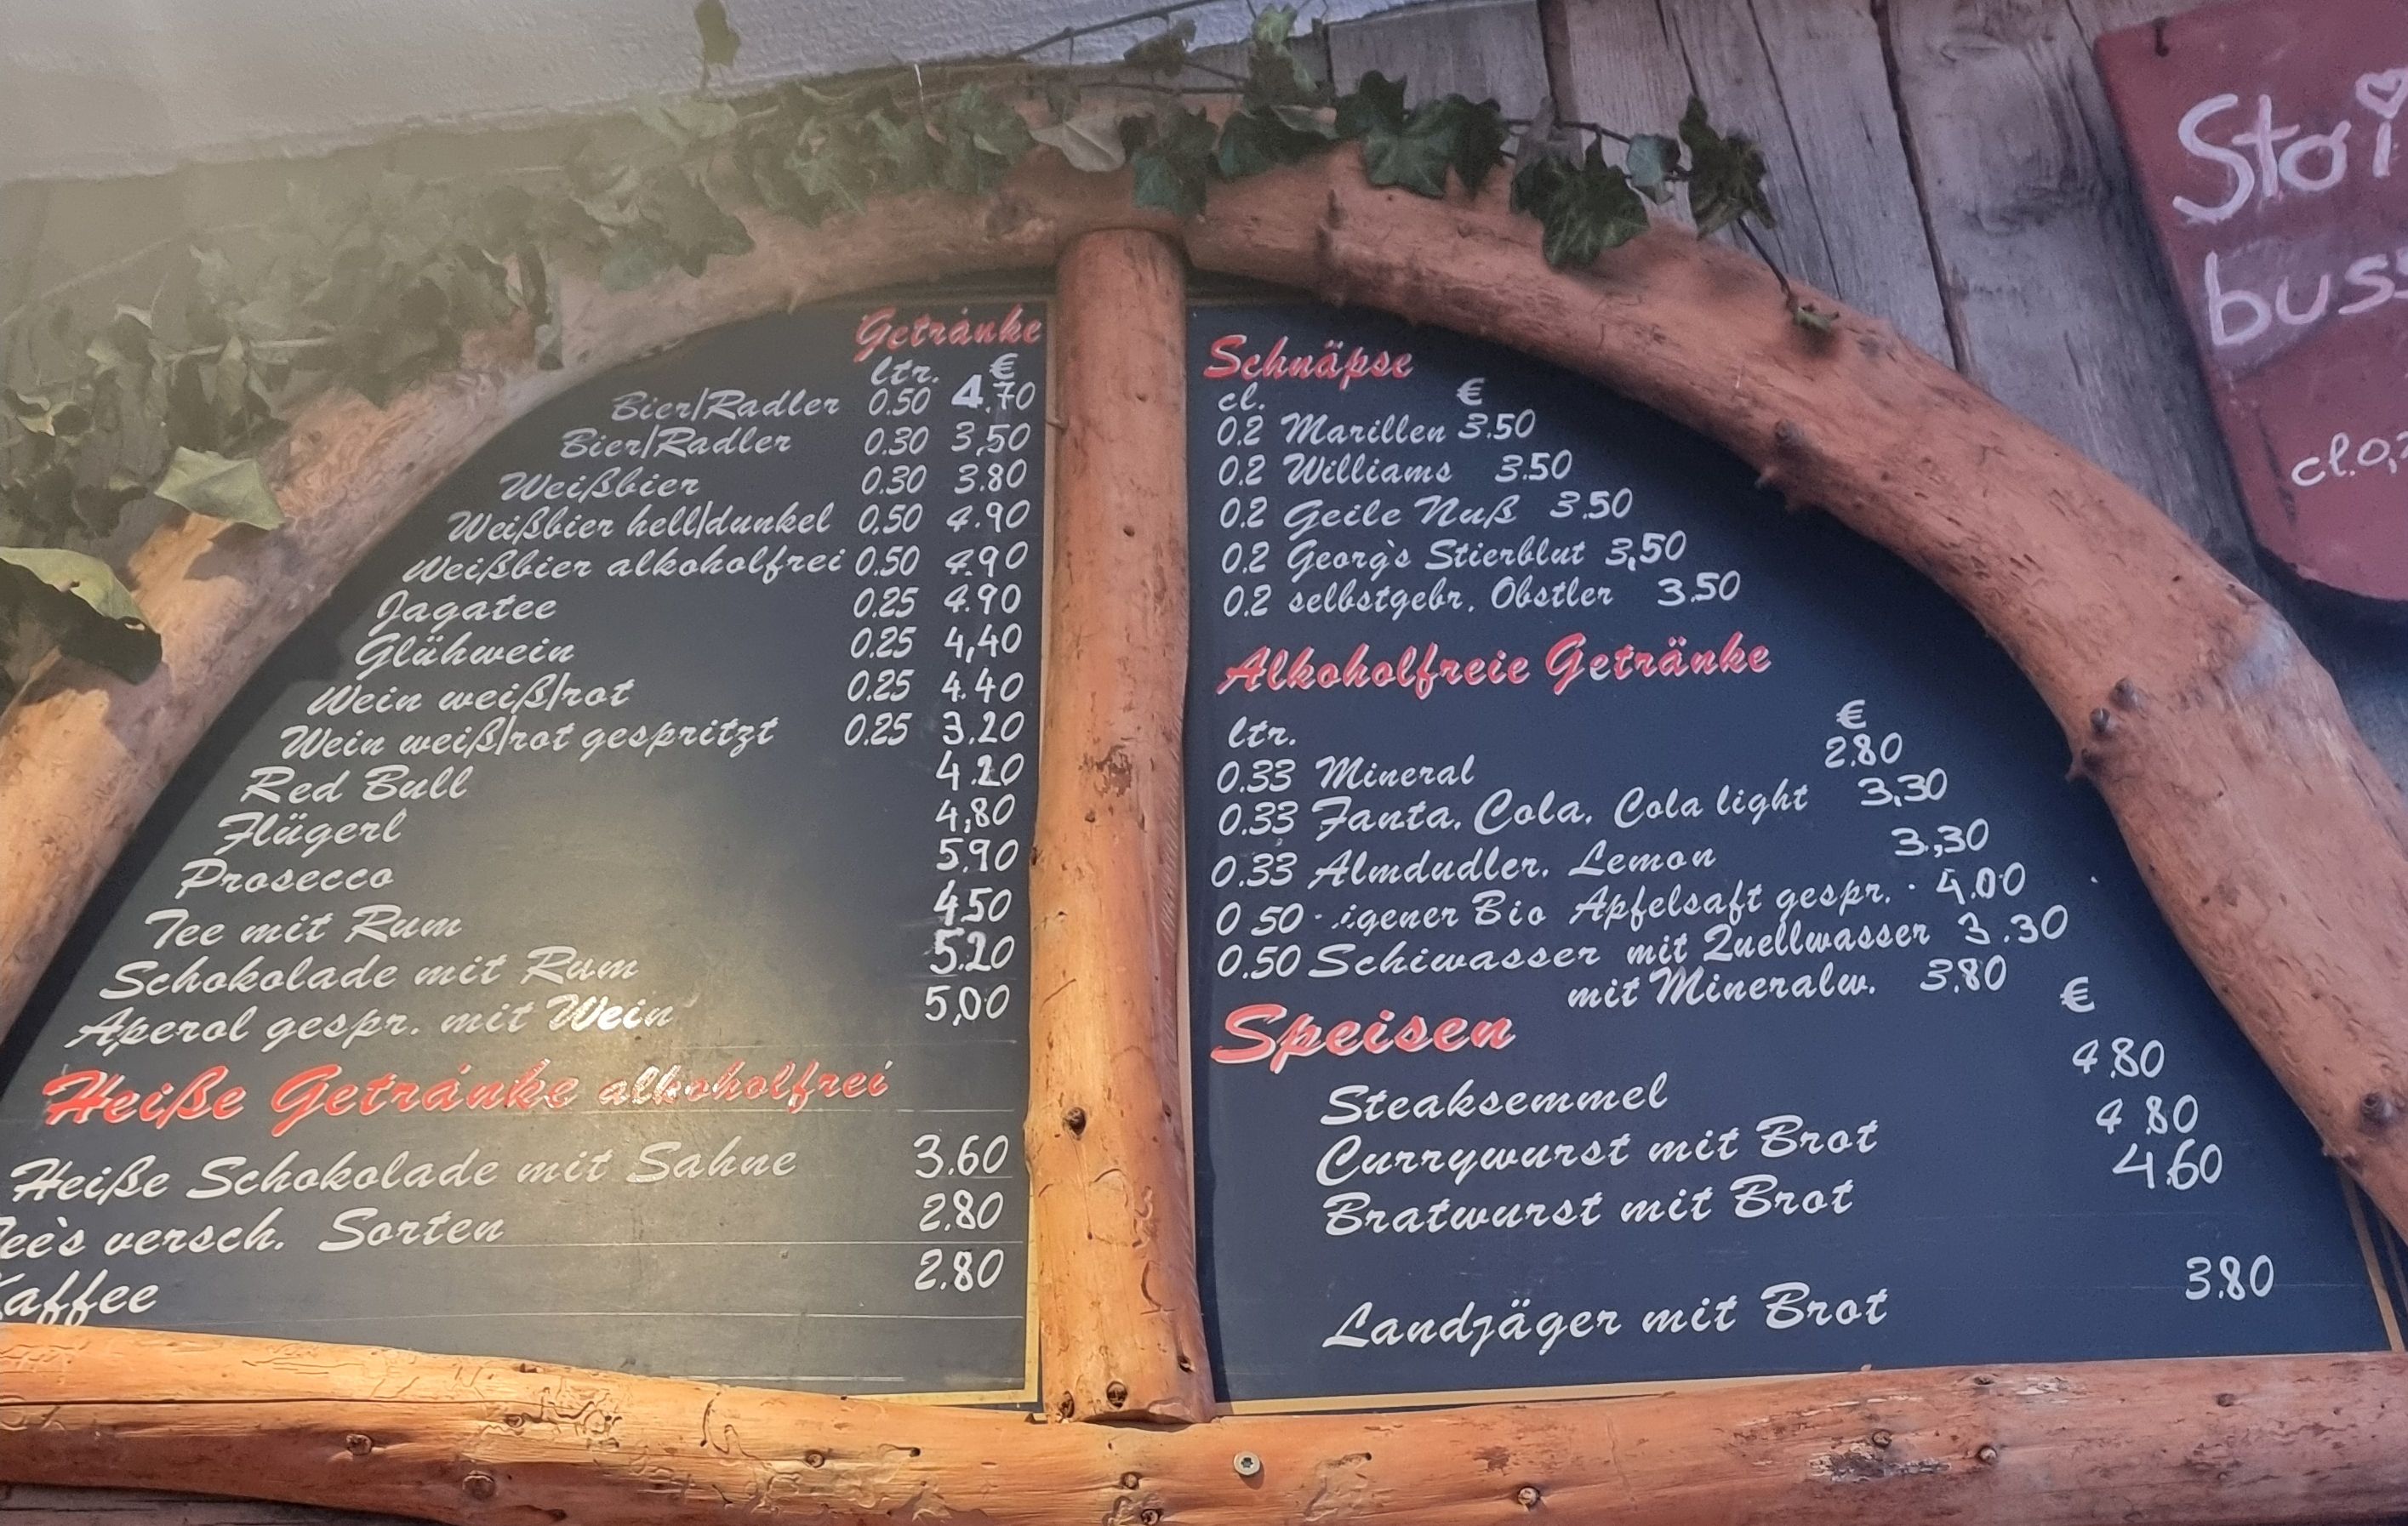 Getränke
ltr. €
Bier/Radler 0.50 4.70
Bier/Radler 0.30 3,50
Weißbier 0.30 3.80
Weißbier hell/dunkel 0.50 4.90
Weißbier alkoholfrei 0.50 4.90
Jagatee 0.25 4.90
Glühwein 0.25 4,40
Wein weiß/rot 0.25 4.40
Wein weiß/rot gespritzt 0.25 3.20
Red Bull 4.20
Flügerl 4,80
Prosecco 5.90
Tee mit Rum 4.50
Schokolade mit Rum 5.20
Aperol gespr. mit Wein 5,00
Heiße Getränke alkoholfrei
Heiße Schokolade mit Sahne 3.60
Tee's versch. Sorten 2.80
Kaffee 2.80
Schnäpse
cl. €
0.2 Marillen 3.50
0.2 Williams 3.50
0.2 Geile Nuß 3.50
0.2 Georg's Stierblut 3,50
0.2 selbstgebr. Obstler 3.50
Alkoholfreie Getränke
ltr. €
0.33 Mineral 2.80
0.33 Fanta, Cola, Cola light 3,30
0.33 Almdudler, Lemon 3,30
0 50 igener Bio Apfelsaft gespr. 4.00
0.50 Schiwasser mit Quellwasser 3.30
mit Mineralw. 3.80
Speisen €
Steaksemmel 4.80
Currywurst mit Brot 4.80
Bratwurst mit Brot 4.60
Landjäger mit Brot 3.80
Stoi
buss
cl.0,2